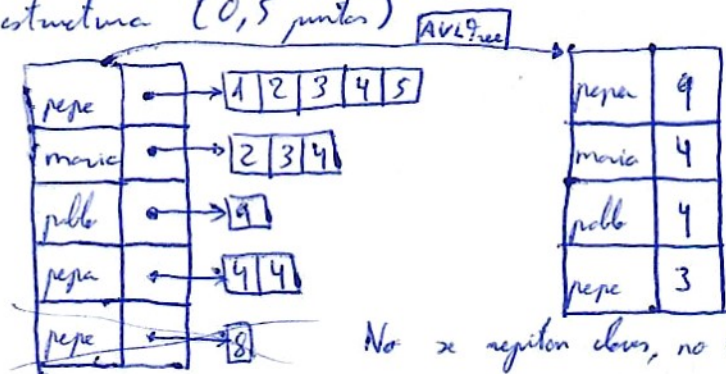 estructura (0,5 puntos)
AVLTree
pepe 1 2 3 4 5
maria 2 3 4
pablo 9
pepa 4 4
pepe 8
pepa 9
maria 4
pablo 4
pepe 3
No se repiten claves, no